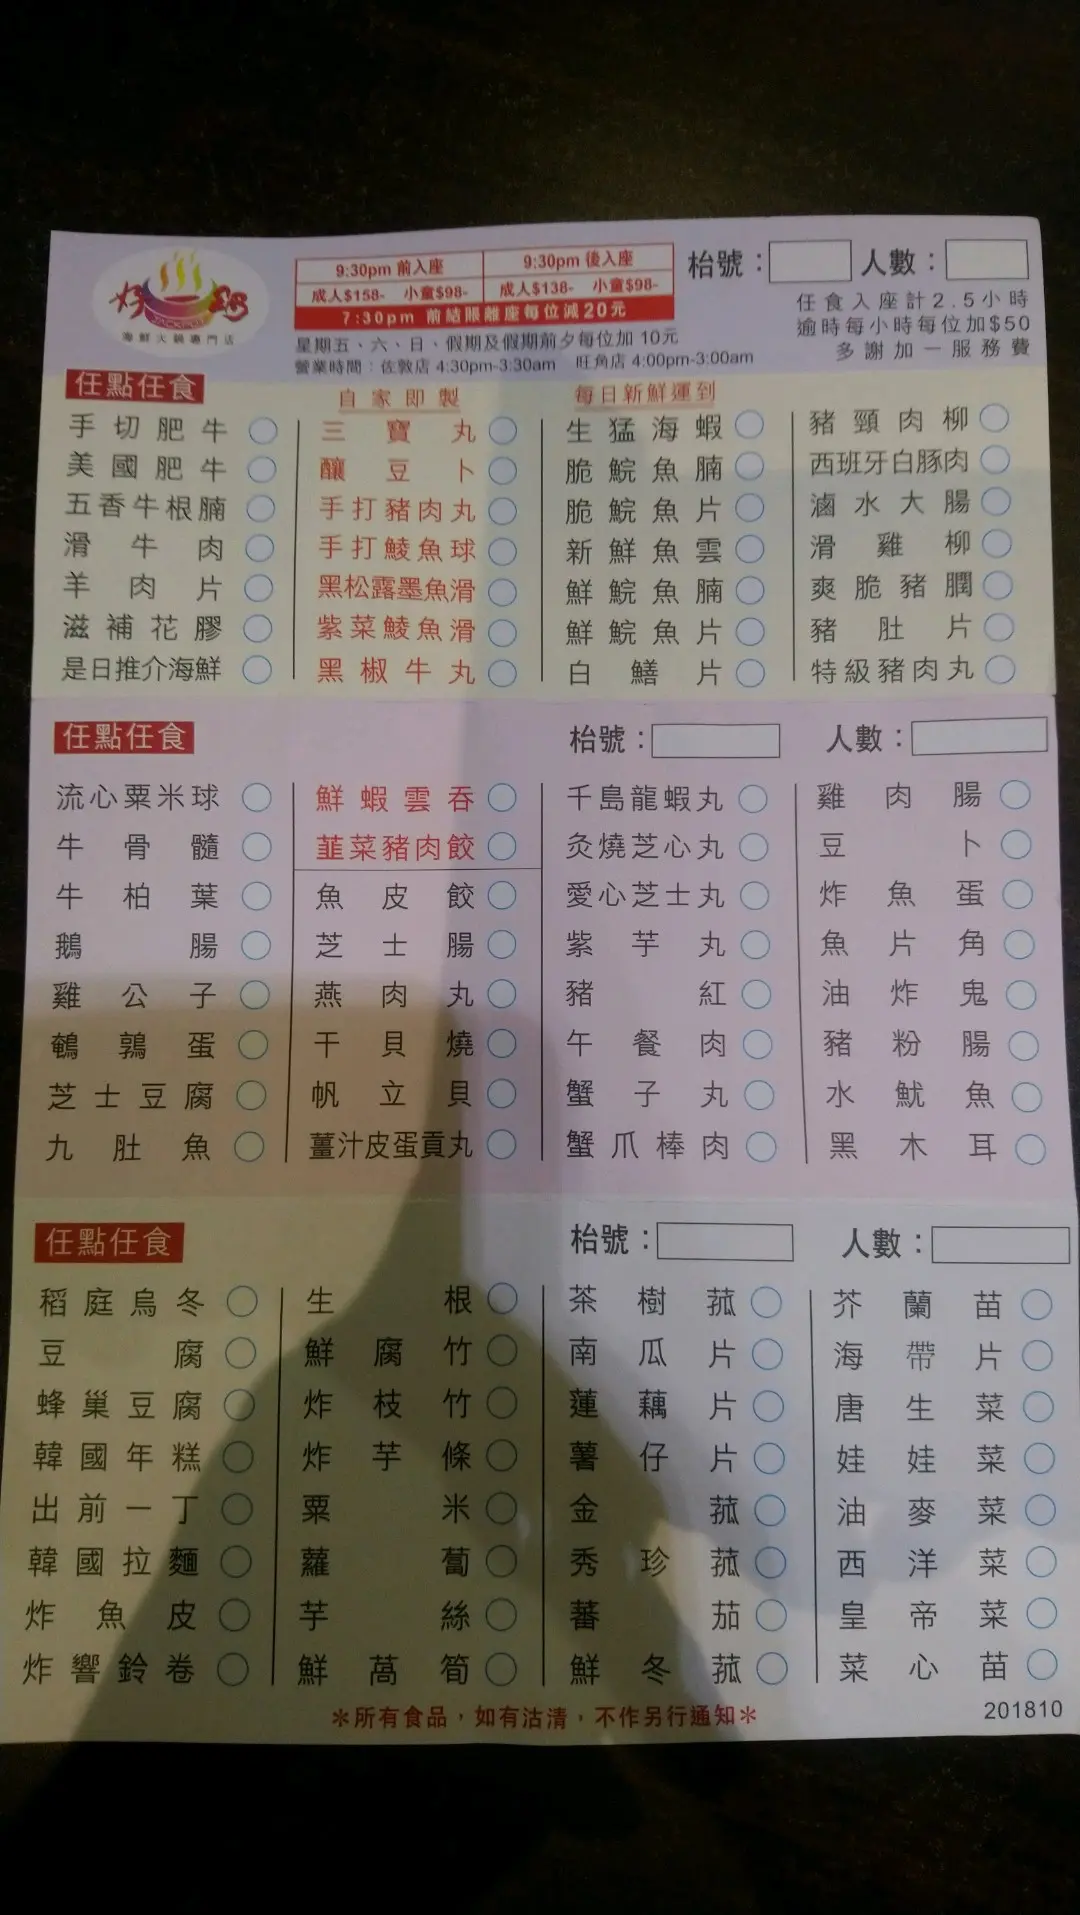 JACKPOT
海鮮火鍋專門店
9:30pm 前入座 9:30pm 後入座
成人$158- 小童$98- 成人$138- 小童$98-
7:30pm 前結賬離座每位減20元
星期五、六、日、假期及假期前夕每位加 10元
營業時間：佐敦店 4:30pm-3:30am 旺角店 4:00pm-3:00am
枱號： 人數：
任食入座計2.5小時
逾時每小時每位加$50
多謝加一服務費
任點任食
手切肥牛
美國肥牛
五香牛根腩
滑牛肉
羊肉片
滋補花膠
是日推介海鮮
自家即製
三寶丸
釀豆卜
手打豬肉丸
手打鯪魚球
黑松露墨魚滑
紫菜鯪魚滑
黑椒牛丸
每日新鮮運到
生猛海蝦
脆鯇魚腩
脆鯇魚片
新鮮魚雲
鮮鯇魚腩
鮮鯇魚片
白鱔片
豬頸肉柳
西班牙白豚肉
滷水大腸
滑雞柳
爽脆豬膶
豬肚片
特級豬肉丸
任點任食
枱號： 人數：
流心粟米球
牛骨髓
牛柏葉
鵝腸
雞公子
鵪鶉蛋
芝士豆腐
九肚魚
鮮蝦雲吞
韮菜豬肉餃
魚皮餃
芝士腸
燕肉丸
干貝燒
帆立貝
薑汁皮蛋貢丸
千島龍蝦丸
灸燒芝心丸
愛心芝士丸
紫芋丸
豬紅
午餐肉
蟹子丸
蟹爪棒肉
雞肉腸
豆卜
炸魚蛋
魚片角
油炸鬼
豬粉腸
水魷魚
黑木耳
任點任食
枱號： 人數：
稻庭烏冬
豆腐
蜂巢豆腐
韓國年糕
出前一丁
韓國拉麵
炸魚皮
炸響鈴卷
生根
鮮腐竹
炸枝竹
炸芋條
粟米
蘿蔔
芋絲
鮮萵筍
茶樹菰
南瓜片
蓮藕片
薯仔片
金菰
秀珍菰
蕃茄
鮮冬菰
芥蘭苗
海帶片
唐生菜
娃娃菜
油麥菜
西洋菜
皇帝菜
菜心苗
＊所有食品，如有沽清，不作另行通知＊
201810